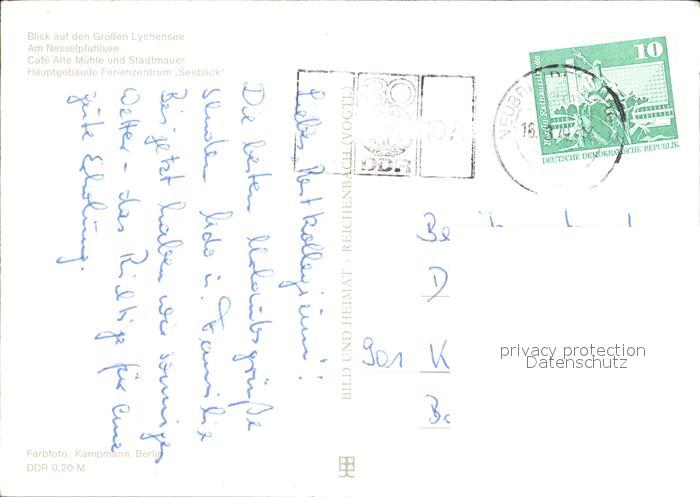 Blick auf den Großen Lychensee
Am Nesselpfuhlsee
Café Alte Mühle und Stadtmauer
Hauptgebäude Ferienzentrum „Seeblick"
Liebes „Restkollegium"!
Die besten Urlaubsgrüße
senden und Familie
Bis jetzt haben wir sonniges
Wetter - das Richtige für eine
gute Erholung.
BILD UND HEIMAT · REICHENBACH (VOGTL)
30
DDR
16.
10
DEUTSCHE DEMOKRATISCHE REPUBLIK
Be
D
901 K
privacy protection
Datenschutz
Farbfoto: Kampmann, Berlin
DDR 0,20 M